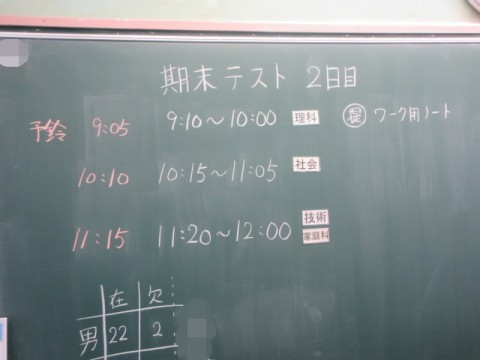 期末テスト 2日目
予鈴 9:05 9:10～10:00 理科 提 ワーク用ノート
10:10 10:15～11:05 社会
11:15 11:20～12:00 技術
家庭科
在 欠
男 22 2